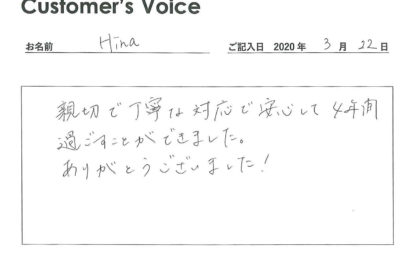 Customer's Voice
お名前 Hina ご記入日 2020 年 3 月 22 日
親切で丁寧な対応で安心して4年間
過ごすことができました。
ありがとうございました!